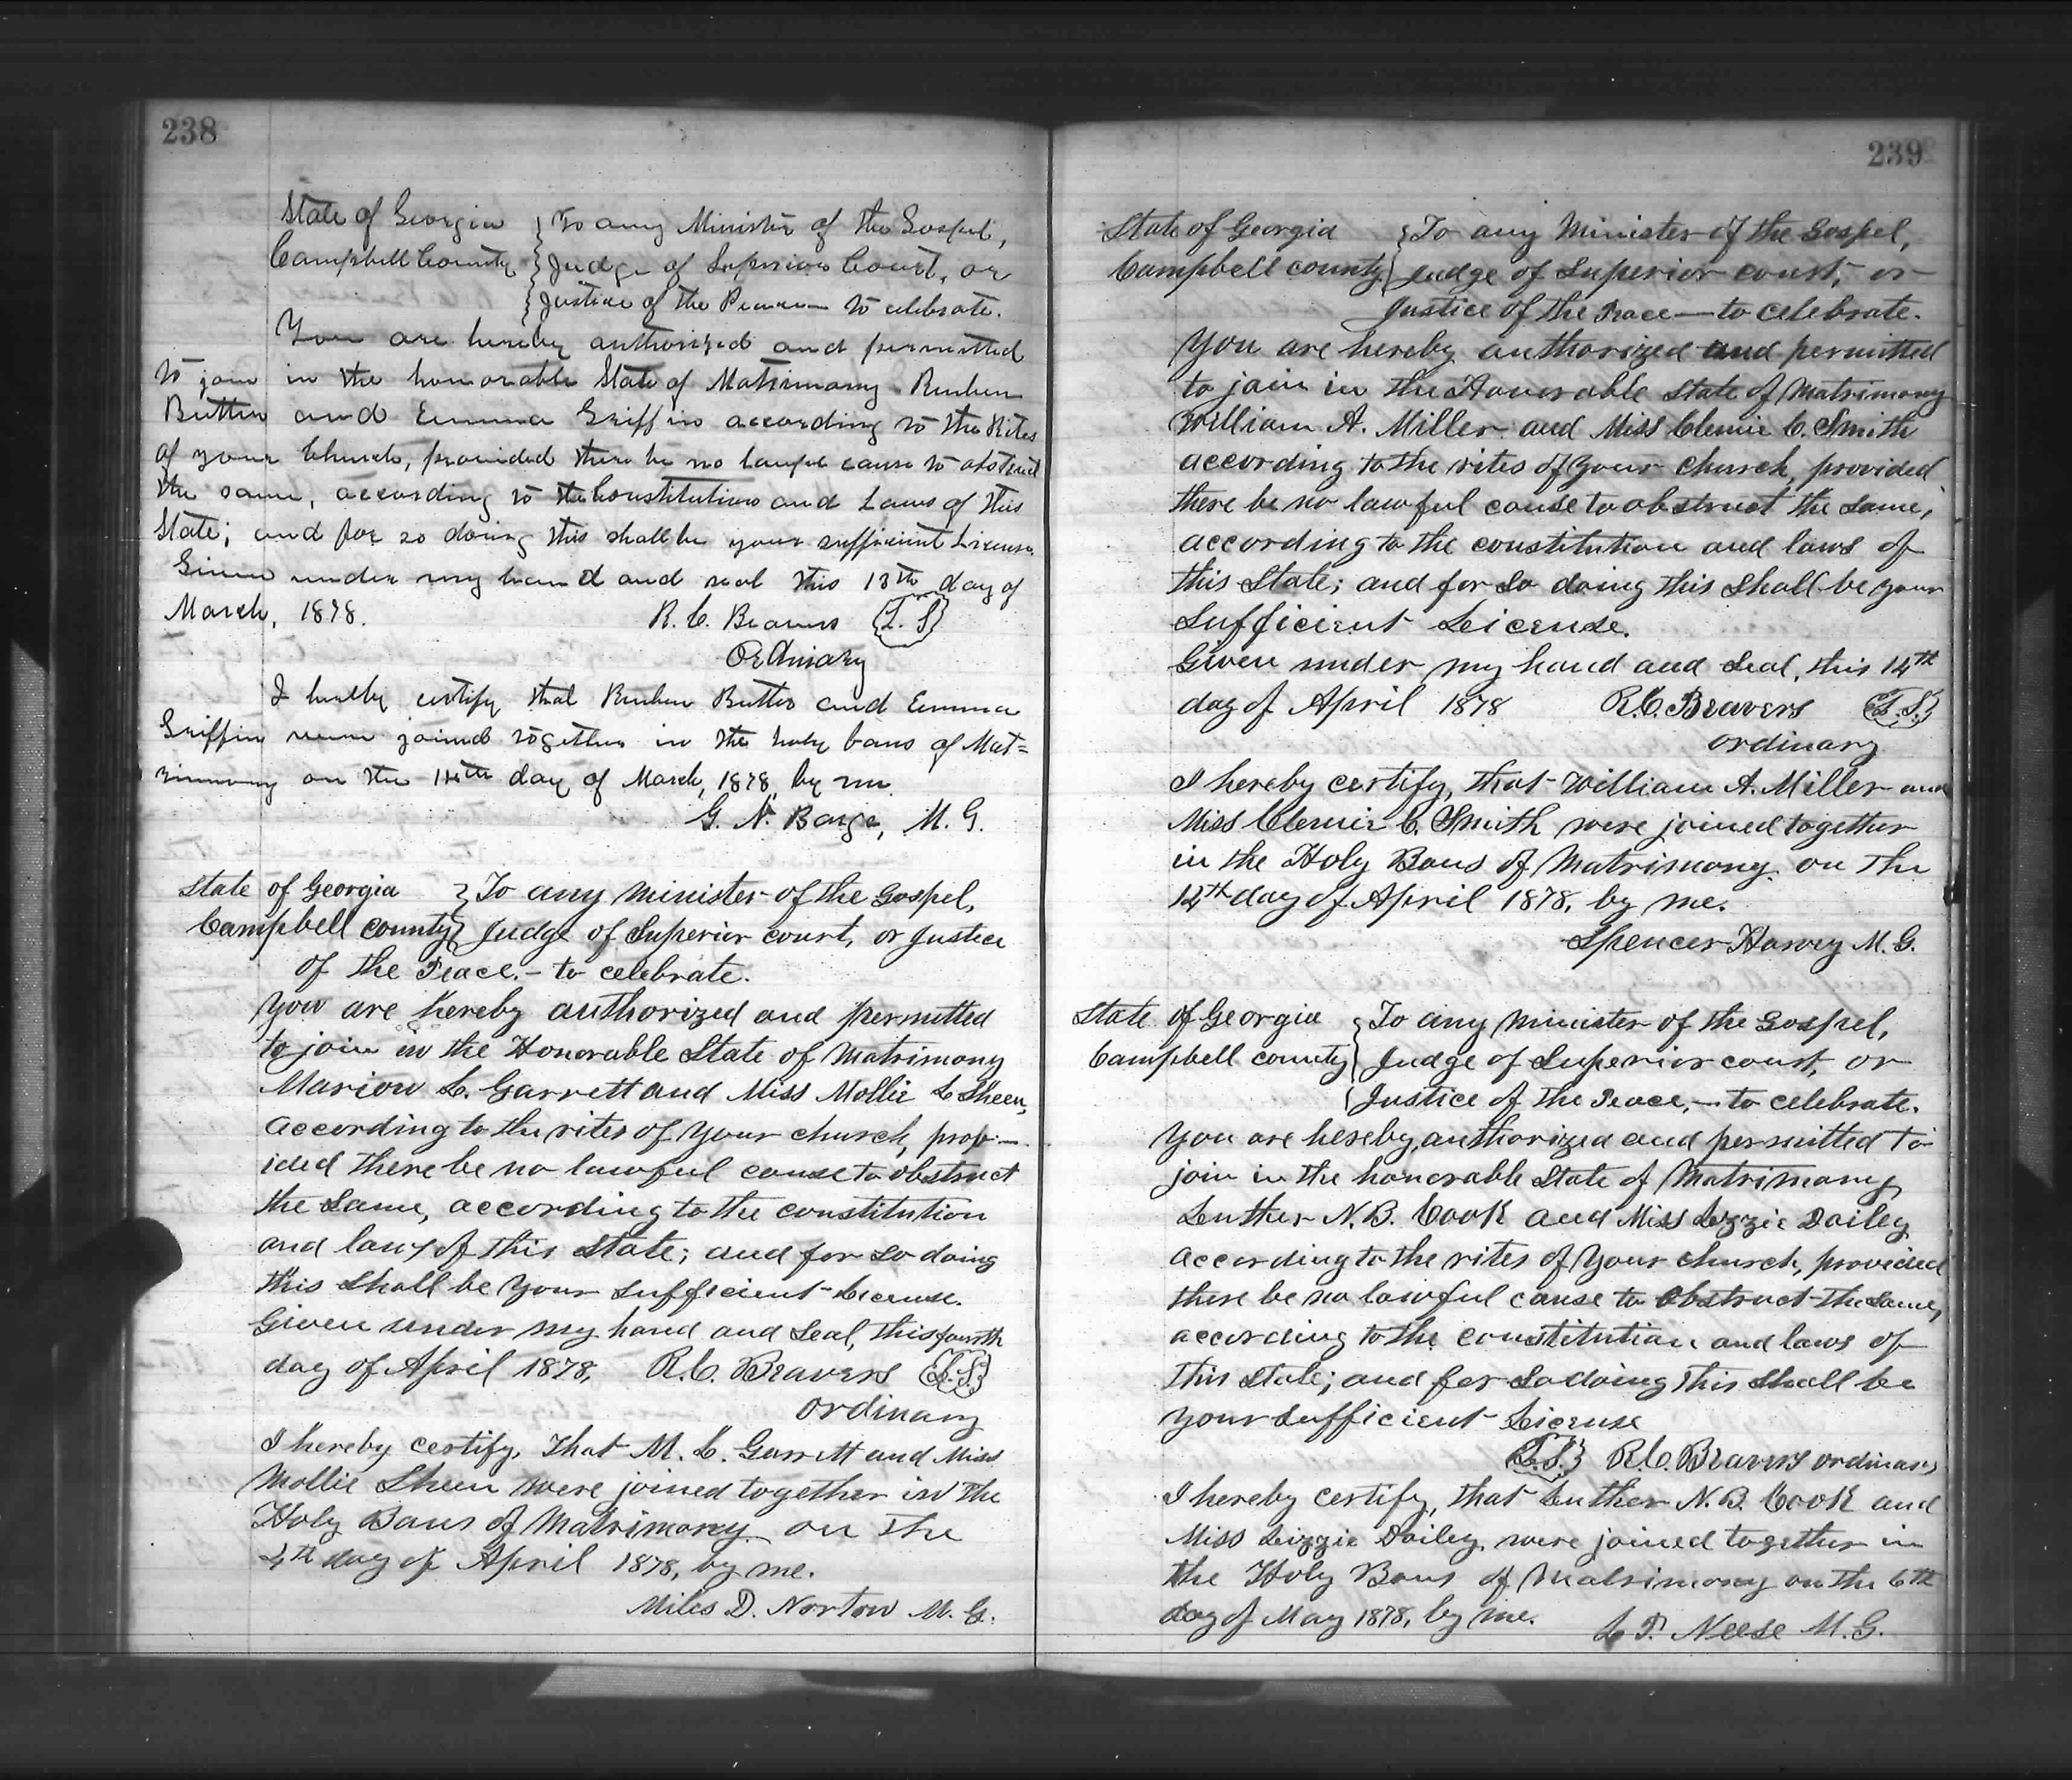 238
State of Georgia } To any Minister of the Gospel,
Campbell County } Judge of Superior Court, or
} Justice of the Peace — to celebrate.
You are hereby authorized and permitted
to join in the honorable State of Matrimony Reuben
Butler and Emma Griffin according to the Rites
of your Church, provided there be no lawful cause to obstruct
the same, according to the Constitution and Laws of this
State; and for so doing this shall be your sufficient License
Given under my hand and seal this 13th day of
March, 1878. R. C. Beavers (L.S)
Ordinary
I hereby certify that Reuben Butler and Emma
Griffin were joined together in the holy bans of Mat=
rimony on the 14th day of March, 1878, by me.
G. N. Barge, M. G.
State of Georgia } To any Minister of the Gospel,
Campbell county } Judge of Superior court, or Justice
of the Peace. — to celebrate.
You are hereby authorized and permitted
to join in the Honorable State of Matrimony
Marion L. Garrett and Miss Mollie L Sheen,
according to the rites of your church, prov-
ided there be no lawful cause to obstruct
the same, according to the constitution
and laws of this State; and for so doing
this shall be your sufficient License.
Given under my hand and Seal, this fourth
day of April 1878, R. C. Beavers (L.S.)
ordinary
I hereby certify, that M. L. Garrett and Miss
Mollie Sheen were joined together in the
Holy Bans of Matrimony on the
4th day of April 1878, by me.
Miles D. Norton M. G.
239
State of Georgia } To any Minister of the Gospel,
Campbell county } Judge of Superior court, or
Justice of the Peace — to celebrate.
You are hereby authorized and permitted
to join in the Honorable State of Matrimony
William A. Miller and Miss Clemie C. Smith
according to the rites of your church, provided
there be no lawful cause to obstruct the same,
according to the constitution and laws of
this State; and for so doing this shall be your
sufficient License.
Given under my hand and Seal, this 14th
day of April 1878 R. C. Beavers (L.S.)
ordinary
I hereby certify, that William A. Miller and
Miss Clemie C. Smith were joined together
in the Holy Bans of Matrimony on the
14th day of April 1878, by me.
Spencer Harvey M. G.
State of Georgia } To any Minister of the Gospel,
Campbell county } Judge of Superior court, or
} Justice of the Peace, — to celebrate.
You are hereby authorized and permitted to
join in the honorable State of Matrimony
Luther N. B. Cook and Miss Lizzie Dailey
according to the rites of your church, provided
there be no lawful cause to obstruct the same,
according to the constitution and laws of
this State; and for so doing this shall be
your sufficient License
(L.S.) R. C. Beavers ordinary
I hereby certify, that Luther N. B. Cook and
Miss Lizzie Dailey were joined together in
the Holy Bans of Matrimony on the 6th
day of May 1878, by me. L P. Neese M. G.